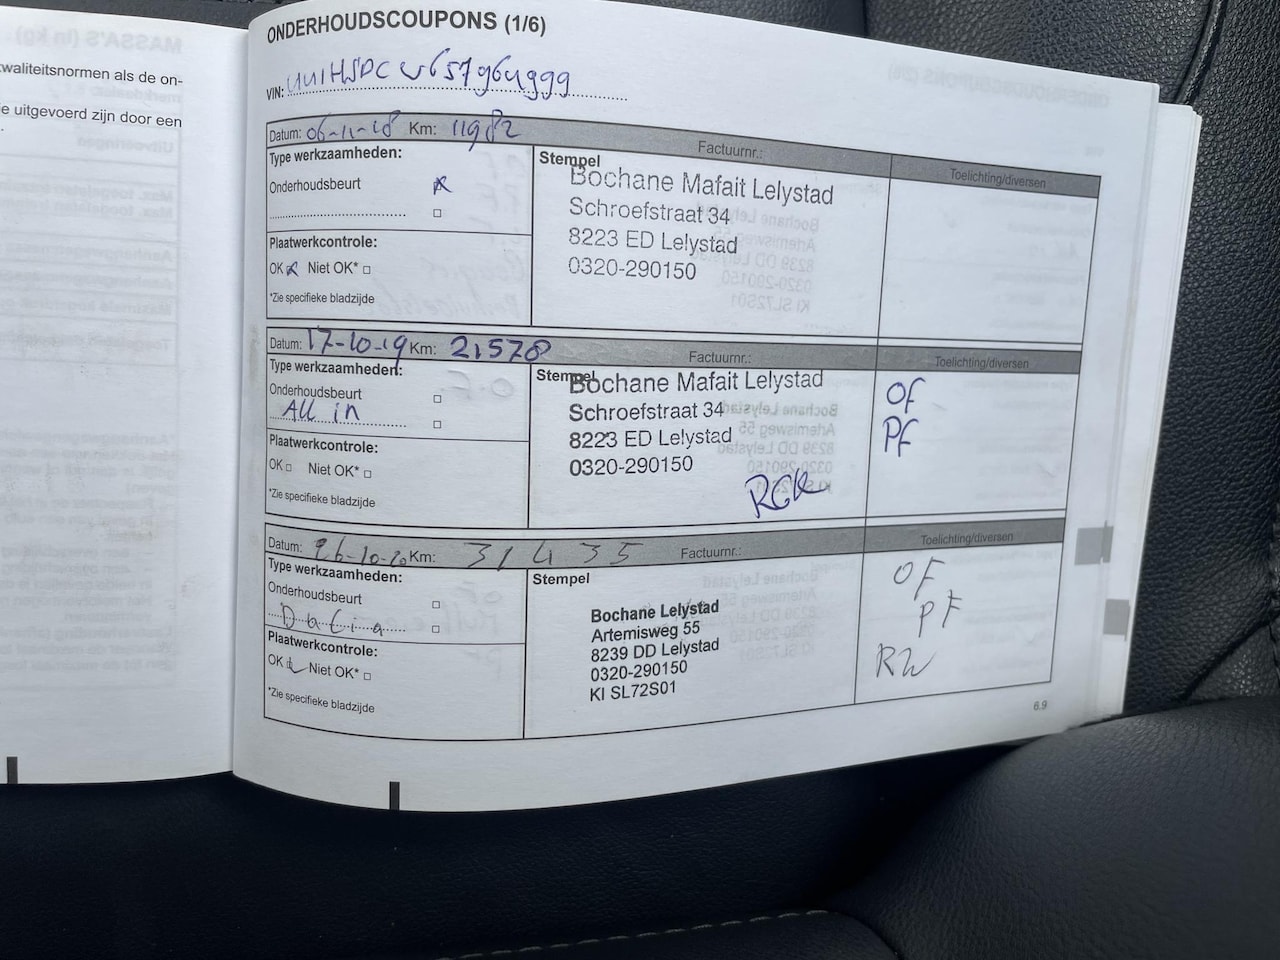 waliteitsnormen als de on-
e uitgevoerd zijn door een
ONDERHOUDSCOUPONS (1/6)
VIN:
Datum: 06-11-18 Km: 11982 Factuurnr.: Toelichting/diversen
Type werkzaamheden:
Onderhoudsbeurt
Plaatwerkcontrole:
OK Niet OK*
*Zie specifieke bladzijde
Stempel
Bochane Mafait Lelystad
Schroefstraat 34
8223 ED Lelystad
0320-290150
Datum: 17-10-19 Km: 21578 Factuurnr.: Toelichting/diversen
Type werkzaamheden:
Onderhoudsbeurt
All in
Plaatwerkcontrole:
OK Niet OK*
*Zie specifieke bladzijde
Stempel
Bochane Mafait Lelystad
Schroefstraat 34
8223 ED Lelystad
0320-290150
OF
PF
Datum: 26-10-20 Km: 31435 Factuurnr.: Toelichting/diversen
Type werkzaamheden:
Onderhoudsbeurt
Dacia
Plaatwerkcontrole:
OK Niet OK*
*Zie specifieke bladzijde
Stempel
Bochane Lelystad
Artemisweg 55
8239 DD Lelystad
0320-290150
KI SL72S01
OF
PF
RW
6.9